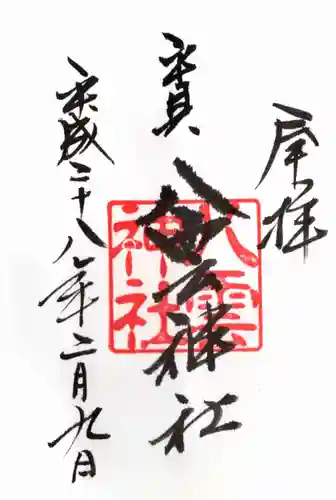 奉拝
八雲神社
八雲
神社
平成二十八年二月九日